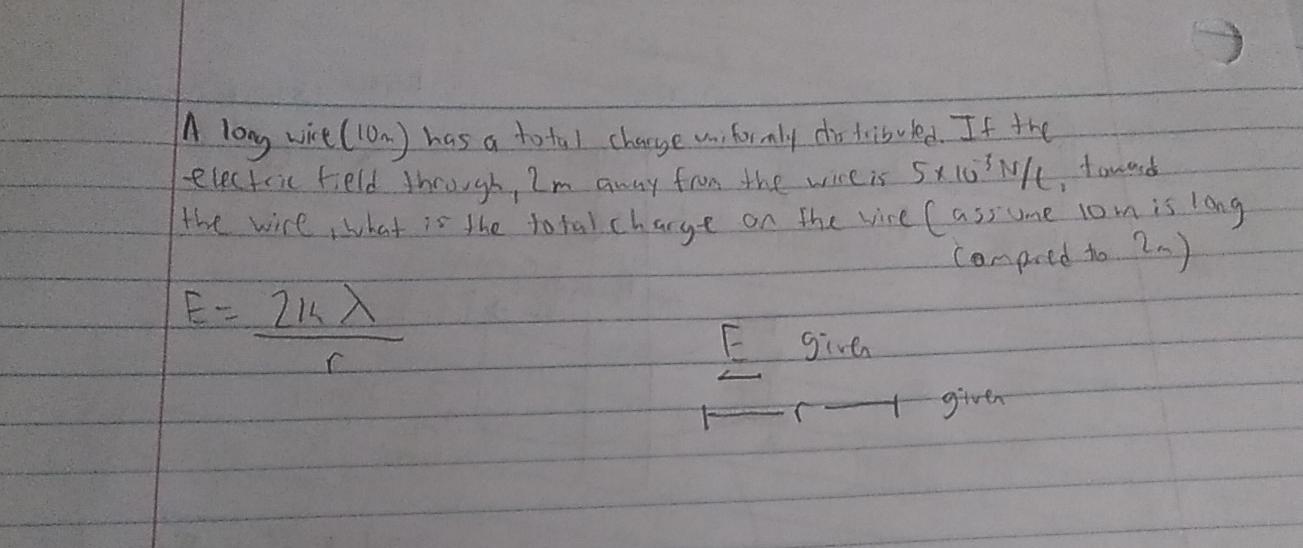 A long wire (10m) has a total charge uniformly distributed. If the
electric field through, 2m away from the wire is 5x10³ N/C, toward
the wire, what is the total charge on the wire (assume 10m is long
compared to 2m)
E = 2kλ
r
E given
r given